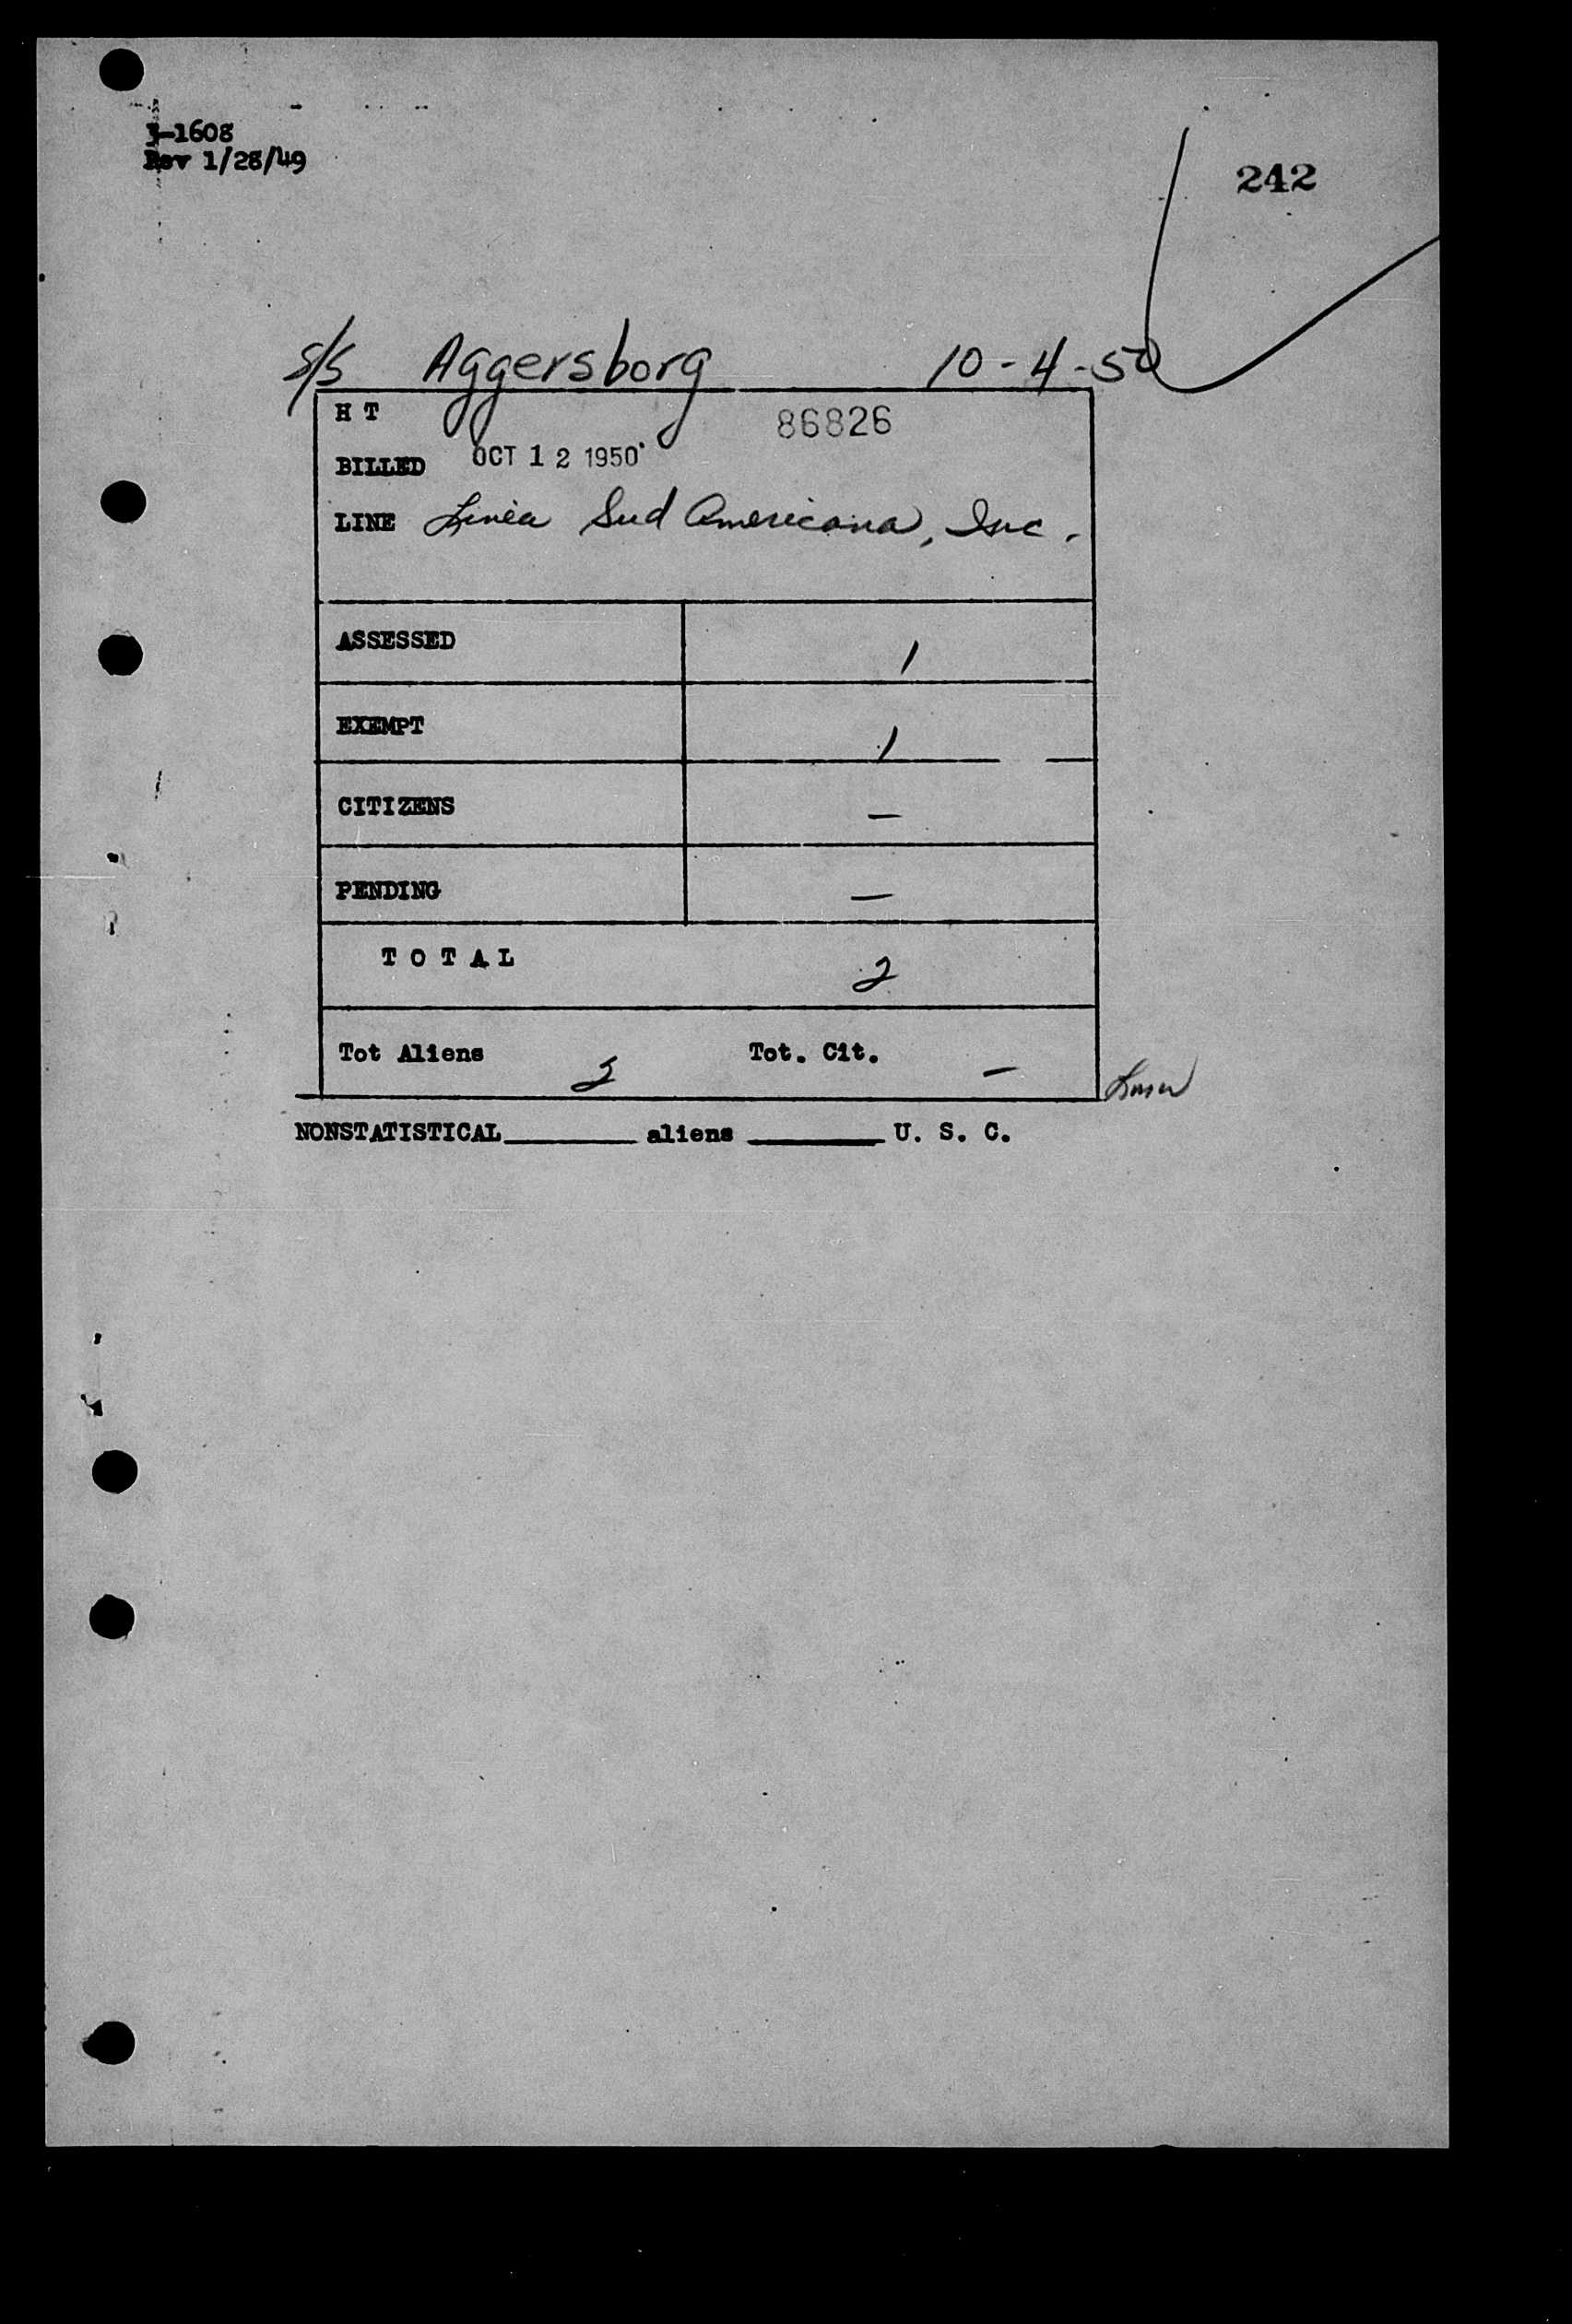 3-1608
Rev 1/28/49
242
S/S Aggersborg 10-4-50
H T 86826
BILLED OCT 12 1950
LINE Linea Sud Americana, Inc.
ASSESSED 1
EXEMPT 1
CITIZENS –
PENDING –
TOTAL 2
Tot Aliens 2 Tot. Cit. –
NONSTATISTICAL________ aliens ________ U. S. C.